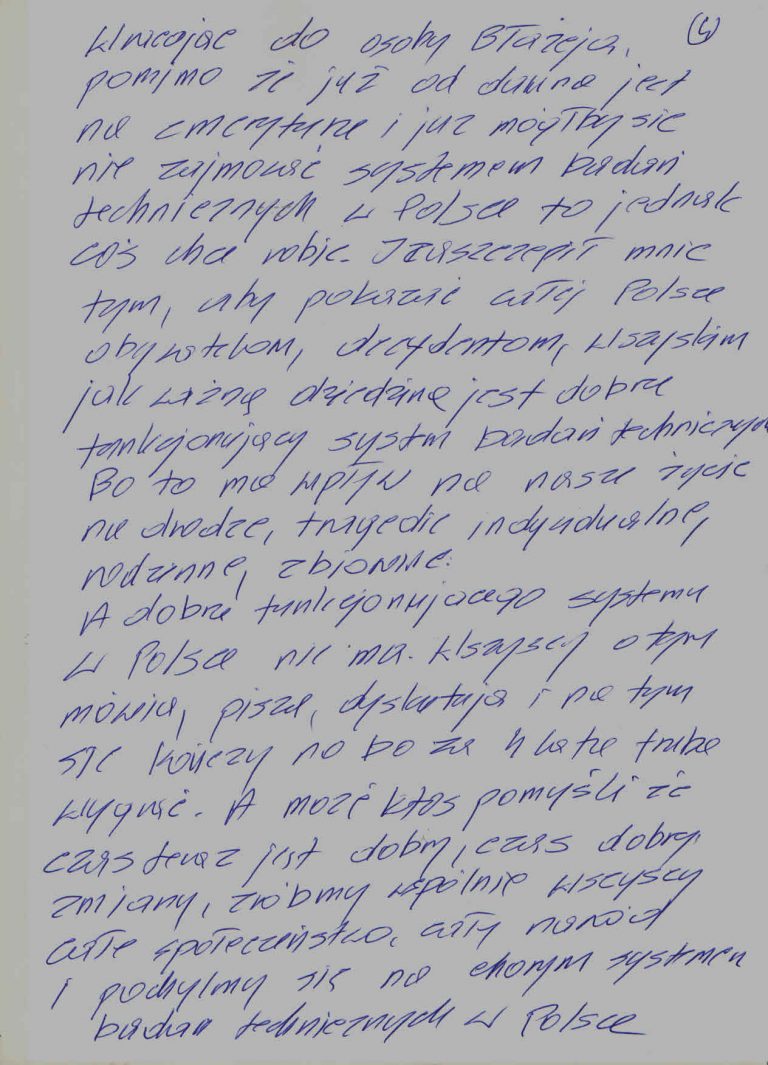 (4)
Wracając do osoby Błażeja,
pomimo że już od dawna jest
na emeryturze i już mógłby się
nie zajmować systemem badań
technicznych w Polsce to jednak
coś chce robić. Zaszczepił mnie
tym, aby pokazać całej Polsce
obywatelom, decydentom, wszyskim
jak ważną dziedziną jest dobrze
funkcjonujący systm badań technicznych
Bo to ma wpływ na nasze życie
na drodze, tragedie indywidualne,
rodzinne, zbiorowe.
A dobrze funkcjonującego systemu
w Polsce nie ma. Wszyscy o tym
mówią, piszą, dyskutują i na tym
się kończy no bo za 4 lata trzeba
wygrać. A może ktoś pomyśli że
czas teraz jest dobry, czas dobrej
zmiany, zróbmy wspólnie wszyscy
całe społeczeństwo, cały naród
i pochylmy się na chorym systemem
badań technicznych w Polsce